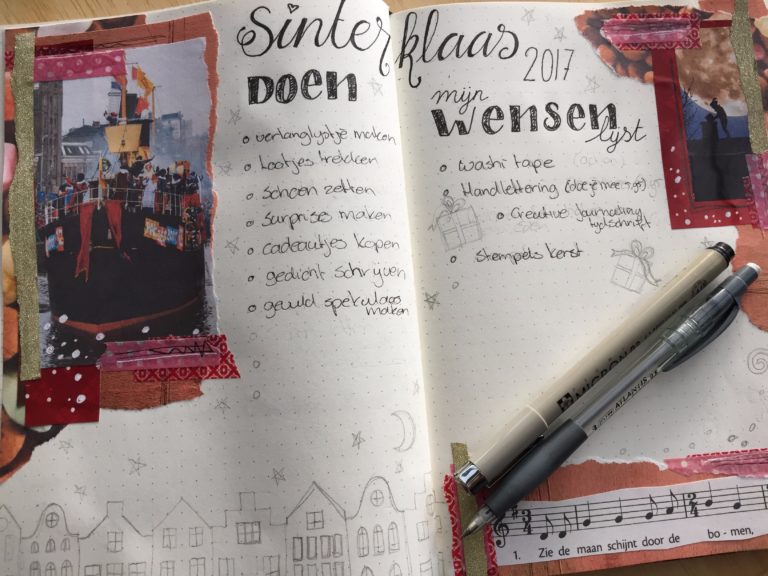 Sinterklaas
2017
DOEN
verlanglijstje maken
lootjes trekken
schoen zetten
surprise maken
cadeautjes kopen
gedicht schrijven
gevuld spekulaas
maken
mijn
wensen
lijst
washi tape
Handlettering (doe je mee
Creative Journaling
tijdschrift
stempels kerst
MICRON
ATLANTIS 0.5
1. Zie de maan schijnt door de bo - men,